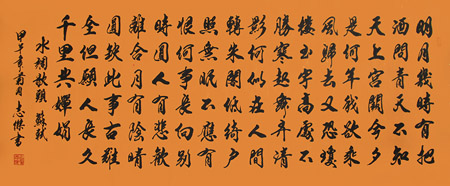 明月幾時有把
酒問青天不知
天上宮闕今夕
是何年我欲乘
風歸去又恐瓊
樓玉宇高處不
勝寒起舞弄清
影何似在人間
轉朱閣低綺户
照無眠不應有
恨何事長向别
時圓人有悲歡
離合月有陰晴
圓缺此事古難
全但願人長久
千里共嬋娟
水調歌頭 蘇軾
甲午年 月志傑書